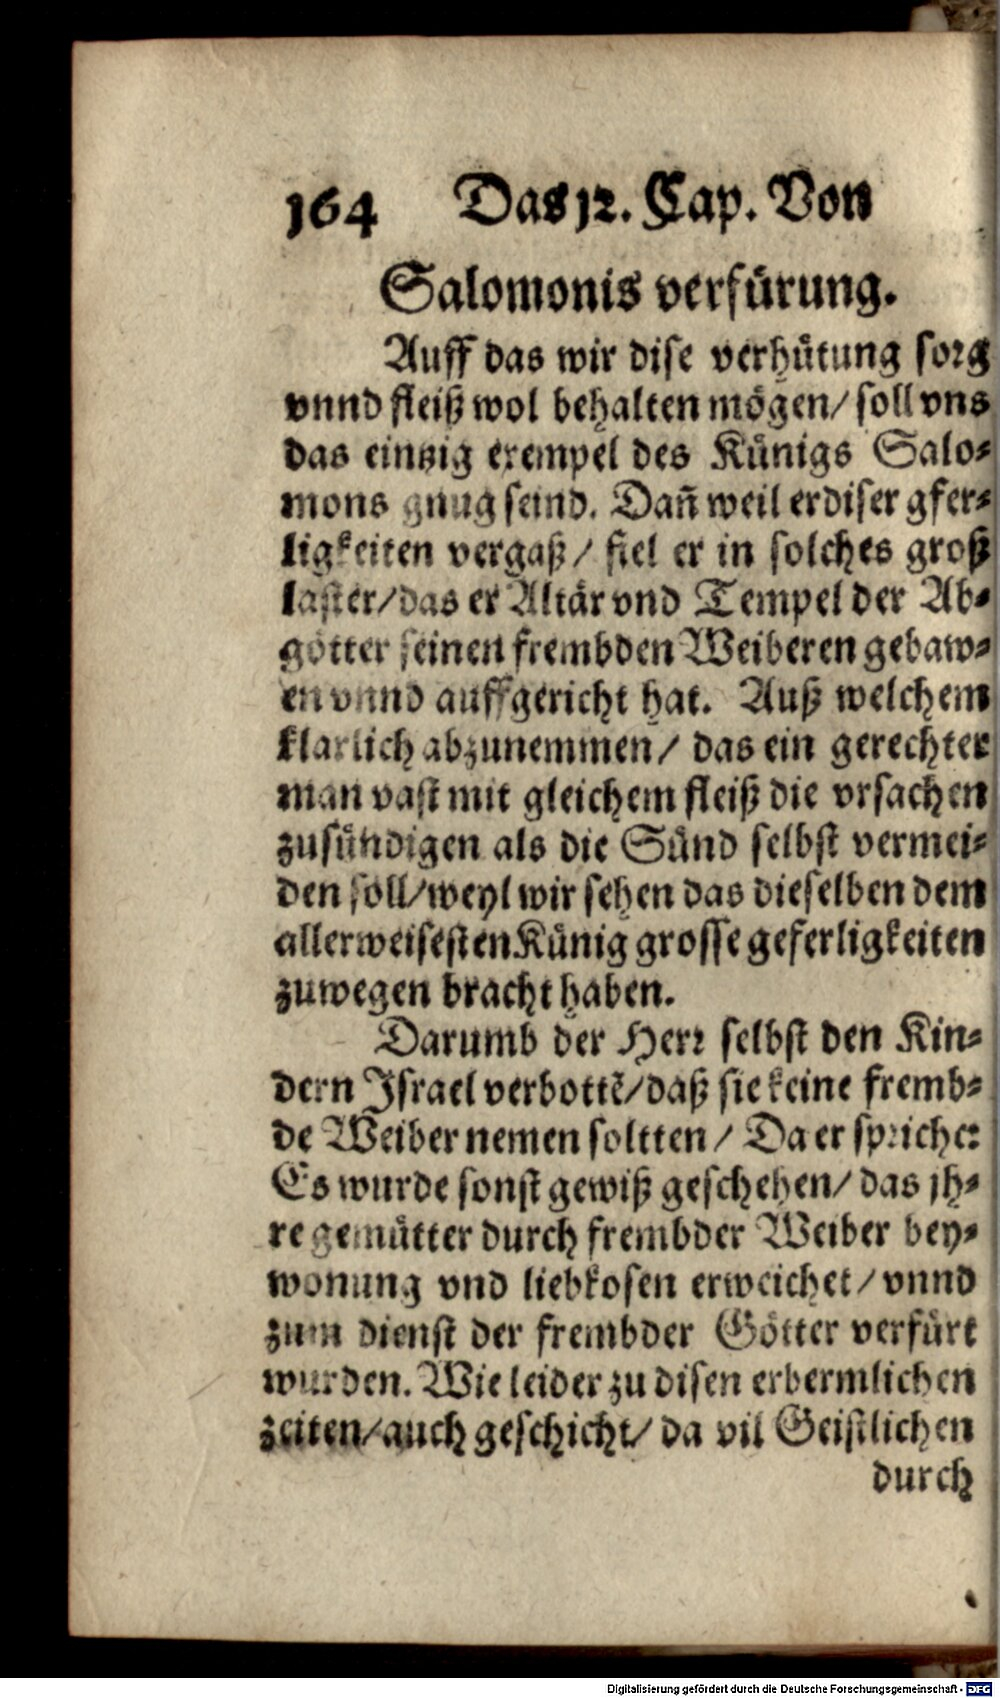 164 Das 12. Cap. Von
Salomonis verfürung.
Auff das wir dise verhütung sorg
vnnd fleiß wol behalten mögen/ soll vns
das eintzig exempel des Künigs Salo-
mons gnug seind. Dañ weil er diser gfer-
ligkeiten vergaß/ fiel er in solches groß
laster/das er Altär vnd Tempel der Ab-
götter seinen frembden Weiberen gebaw-
en vnnd auffgericht hat. Auß welchem
klarlich abzunemmen/ das ein gerechter
man vast mit gleichem fleiß die vrsachen
zusündigen als die Sünd selbst vermei-
den soll/weyl wir sehen das dieselben dem
allerweisesten Künig grosse geferligkeiten
zuwegen bracht haben.
Darumb der Herr selbst den Kin-
dern Israel verbottẽ/daß sie keine fremb-
de Weiber nemen soltten/ Da er spricht:
Es wurde sonst gewiß geschehen/ das jh-
re gemütter durch frembder Weiber bey-
wonung vnd liebkosen erweichet/ vnnd
zum dienst der frembder Götter verfürt
wurden. Wie leider zu disen erbermlichen
zeiten/auch geschicht/ da vil Geistlichen
durch
Digitalisierung gefördert durch die Deutsche Forschungsgemeinschaft - DFG